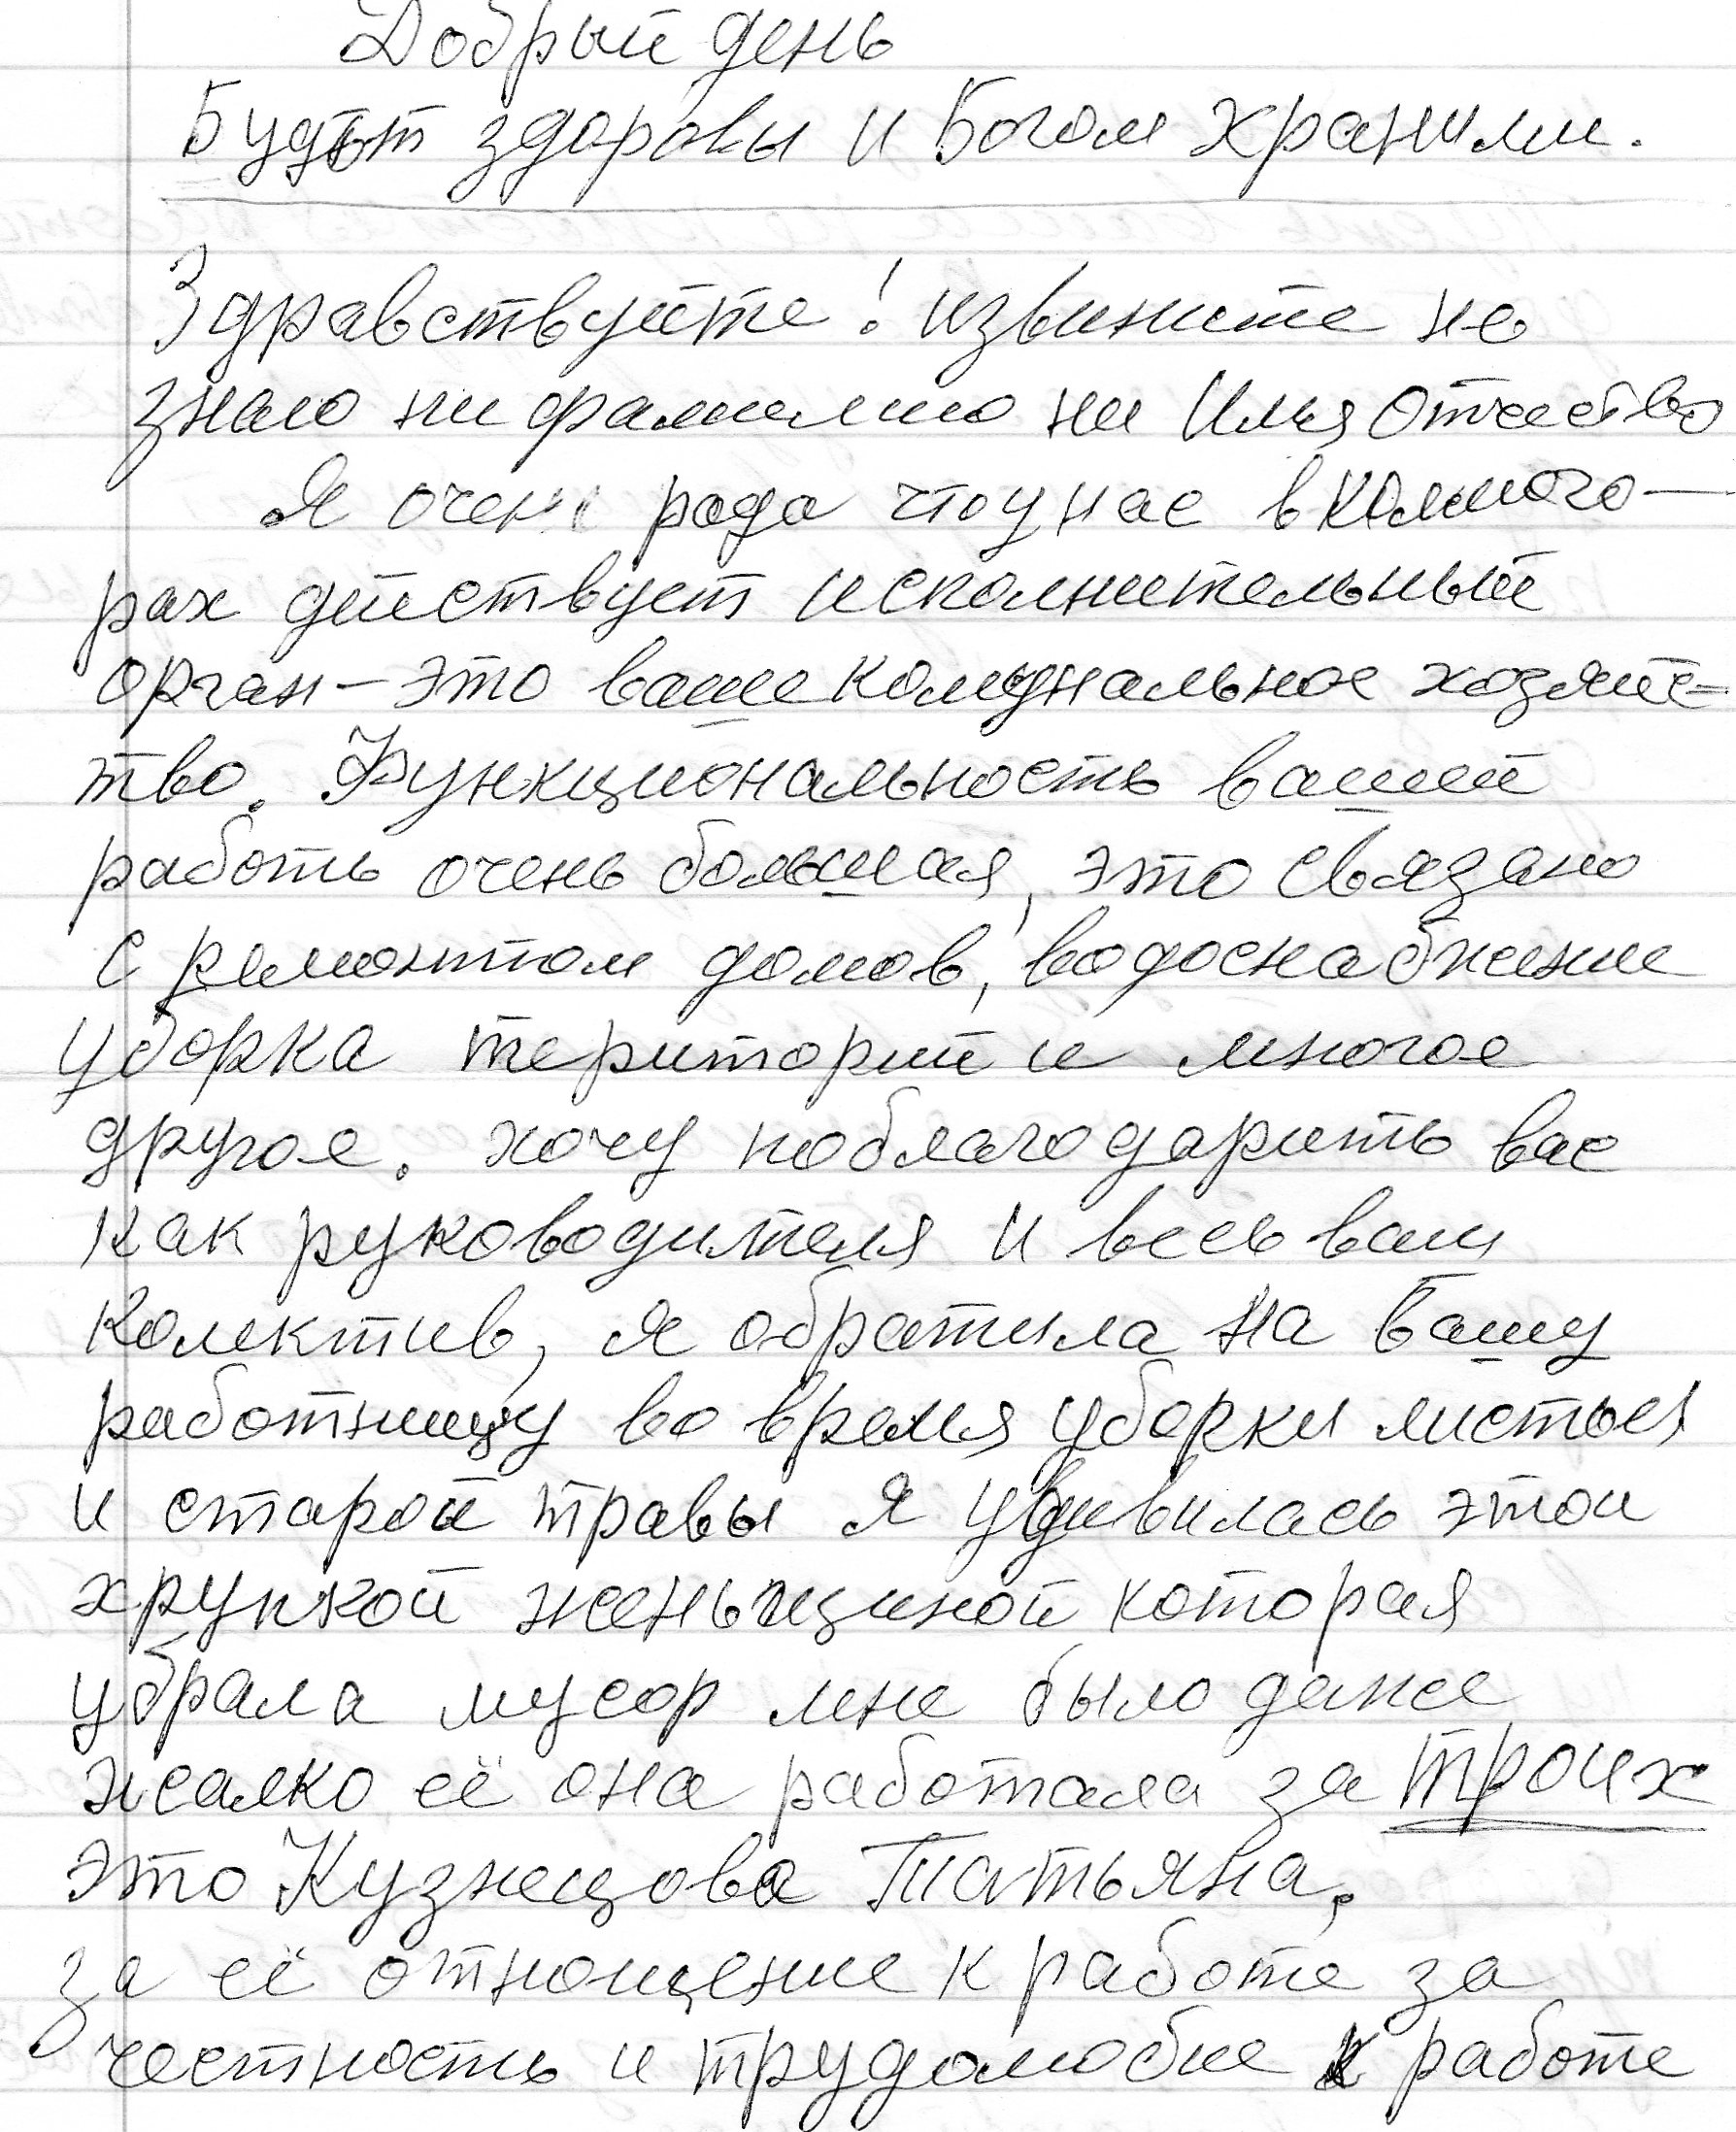 Добрый день
Будьт здоровы и Богом хранимы.
Здравствуйте! извините не
знаю ни фамилию ни Имя Отчество
Я очень рада что у нас в Колмого-
рах действует исполнительный
орган - это ваше комунальное хозяйс-
тво. Функциональность вашей
работь очень большая, это связано
с ремонтом домов, водоснабжение
уборка територий и многое
другое. хочу поблагодарить вас
как руководителя и весь ваш
колектив, я обратила на вашу
работницу во время уборки листьев
и старой травы я удивилась этой
хрупкой женьщиной которая
убрала мусор мне было даже
жалко её она работала за троих
это Кузнецова Татьяна,
за её отношение к работе за
честность и трудолюбие к работе